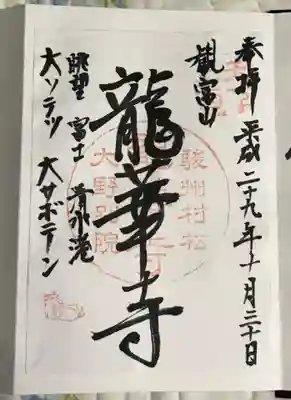 奉拝 平成二十九年十月三十日
観富山
駿州村松
龍華寺
大野別院
眺望 富士 清水港
大ソテツ 大サボテン